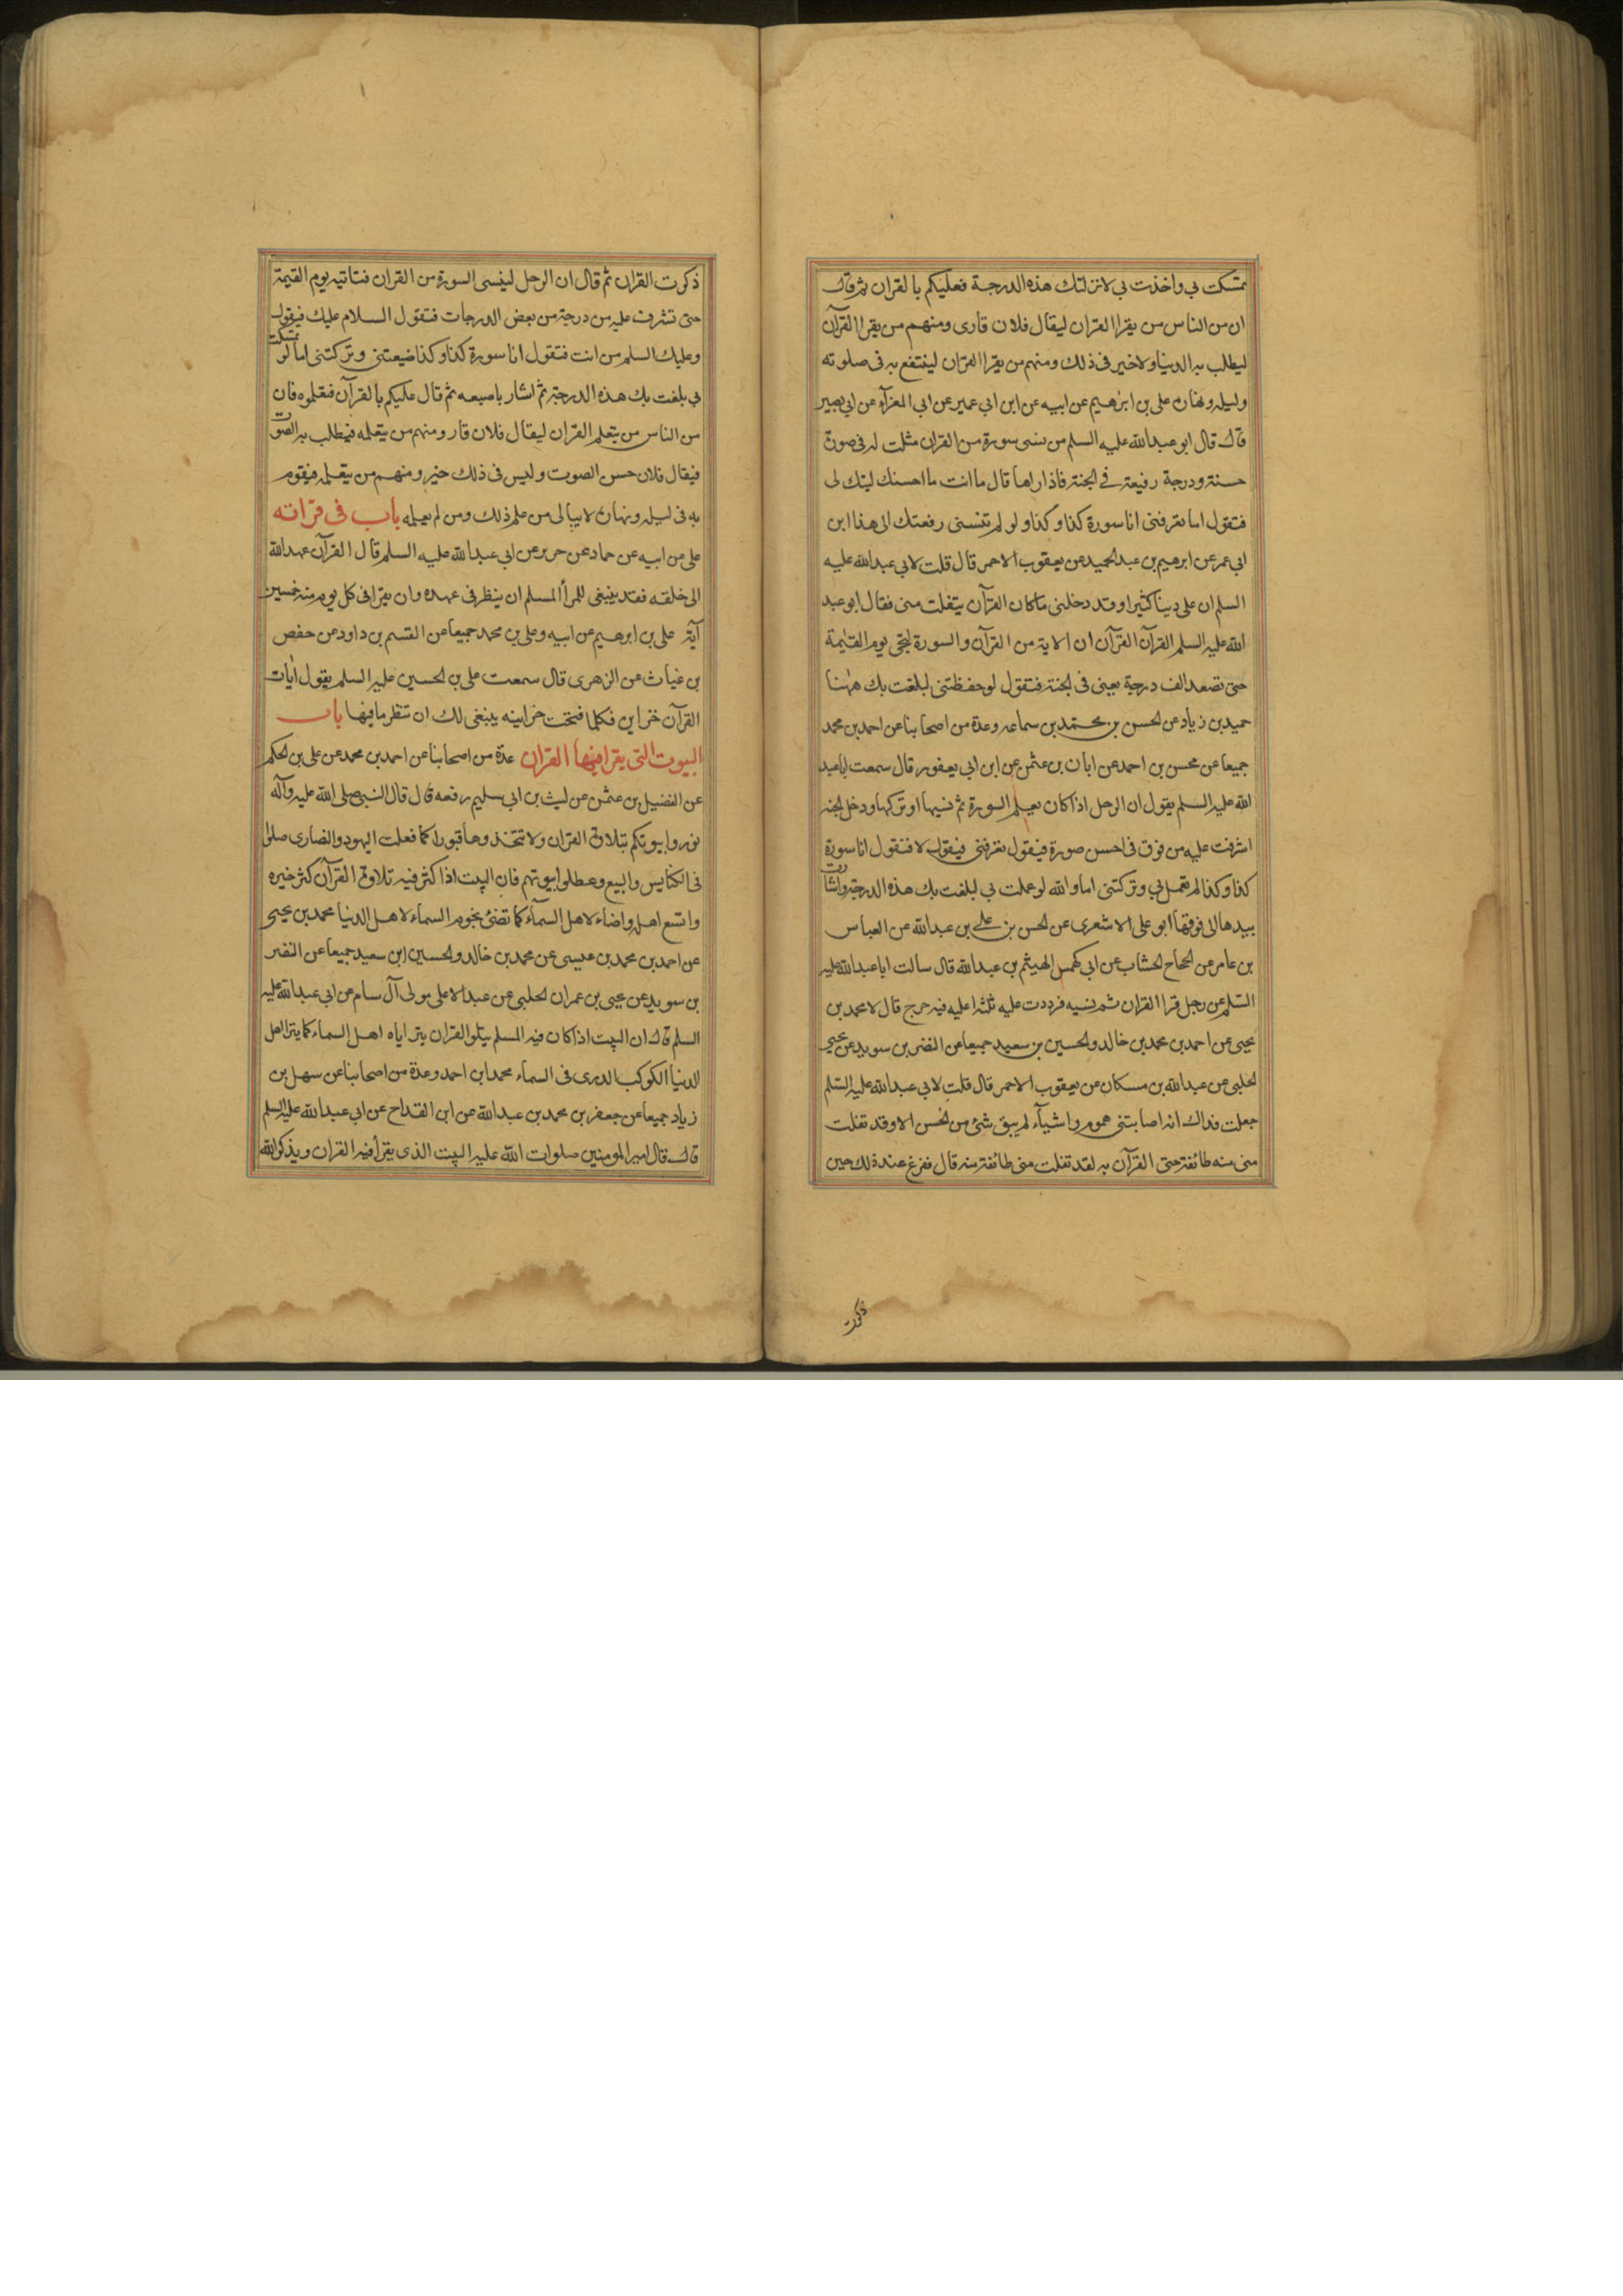 تمسكت بي واخذت بي لانزلتك هذه الدرجة فعليكم بالقران ثم قال
ان من الناس من يقرا القران ليقال فلان قارى ومنهم من يقرا القرآن
ليطلب به الدنيا ولا خير فى ذلك ومنهم من يقرا القران لينتفع به فى صلوته
وليله ونهاره على بن ابرهيم عن ابيه عن ابن ابي عمير عن ابي المعزآء عن ابي بصير
قال قال ابو عبدالله عليه السلم من نسى سورة من القران مثلت له فى صورة
حسنة ودرجة رفيعة في الجنة فاذا راها قال ما انت ما احسنك ليتك لى
فتقول اما تعرفنى انا سورة كذا وكذا ولو لم تنسنى رفعتك الى هذا ابن
ابي عمر عن ابرهيم بن عبد الحميد عن يعقوب الاحمر قال قلت لابي عبدالله عليه
السلم ان على دينا كثيرا وقد دخلنى ما كان القرآن يتفلت منى فقال ابو عبد
الله عليه السلم القرآن القرآن ان الاية من القرآن والسورة لتجئ يوم القيمة
حتى تصعد الف درجة يعنى فى الجنة فتقول لو حفظتنى لبلغت بك ههنا
حميد بن زياد عن الحسن بن محتمد بن سماعه وعدة من اصحابنا عن احمد بن محمد
جميعا عن محسن بن احمد عن ابان بن عثمن عن ابن ابي يعفور قال سمعت ابا عبد
الله عليه السلم يقول ان الرجل اذا كان يعلم السورة ثم نسيها او تركها ودخل الجنه
اشرفت عليه من فوق فى احسن صورة فيقول تعرفنى فيقول لا فتقول انا سورة
كذا وكذا لم تعمل بي وتركتنى اما والله لو عملت بي لبلغت بك هذه الدرجة واشارت
بيدها الى فوقها ابو على الاشعرى عن الحسن بن على بن عبدالله عن العباس
بن عامر عن الحجاج الخشاب عن ابى كهمس الهيثم بن عبدالله قال سالت ابا عبدالله عليه
السلم عن رجل قرا القران ثم نسيه فرددت عليه ثلثا اعليه فيه حرج قال لا محمد بن
يحيى عن احمد بن محمد بن خالد والحسين بن سعيد جميعا عن النضر بن سويد عن يحيى
الحلبى عن عبدالله بن مسكان عن يعقوب الاحمر قال قلت لابي عبدالله عليه السلم
جعلت فداك انه اصابتنى هموم واشيآء لم يبق شئ من الخسن الا وقد تفلت
منى منه طائفة حتى القرآن به لقد تفلت منى طائفة منه قال ففزع عند ذلك حين
ذكرت
ذكرت القران ثم قال ان الرجل لينسى السورة من القران فتاتيه يوم القيمة
حتى تشرف عليه من درجة من بعض الدرجات فتقول السلام عليك فيقول
وعليك السلم من انت فتقول انا سورة كذا وكذا ضيعتنى وتركتنى اما لو تمسكت
بي بلغت بك هذه الدرجة ثم اشار باصبعه ثم قال عليكم بالقرآن فتعلموه فان
من الناس من يتعلم القران ليقال فلان قار ومنهم من يتعلمه فيطلب به الصوت
فيقال فلان حسن الصوت وليس فى ذلك خير ومنهم من يتعلمه فيقوم
به فى ليله ونهاره لا يبالى من علم ذلك ومن لم يعلمه باب فى قراته
على عن ابيه عن حماد عن حريز عن ابي عبدالله عليه السلم قال القرآن عهد الله
الى خلقه فقد ينبغى للمرأ المسلم ان ينظر فى عهده وان يقرا فى كل يوم منه خمسين
آية على بن ابرهيم عن ابيه وعلى بن محمد جميعا عن القسم بن داود عن حفص
بن غياث عن الزهرى قال سمعت على بن الحسين عليه السلم يقول ايات
القرآن خزاين فكلما فتحت خزاينه ينبغى لك ان تنظر ما فيها باب
البيوت التى يقرا فيها القران عدة من اصحابنا عن احمد بن محمد عن على بن الحكم
عن الفضيل بن عثمن عن ليث بن ابى سليم رفعه قال قال النبى صلى الله عليه وآله
نوروا بيوتكم بتلاوة القران ولا تتخذوها قبورا كما فعلت اليهود والنصارى صلوا
فى الكنايس والبيع وعطلوا بيوتهم فان البيت اذا كثر فيه تلاوة القرآن كثر خيره
واتسع اهله واضاء لاهل السمآء كما تضئ نجوم السماء لاهل الدنيا محمد بن يحيى
عن احمد بن محمد بن عيسى عن محمد بن خالد والحسين ابن سعيد جميعا عن النضر
بن سويد عن يحيى بن عمران الحلبى عن عبد الاعلى مولى آل سام عن ابي عبدالله عليه
السلم قال ان البيت اذا كان فيه المسلم يتلو القران يترااه اهل السماء كما يترا اهل
الدنيا الكوكب الدرى فى السماء محمد ابن احمد وعدة من اصحابنا عن سهل بن
زياد جميعا عن جعفر بن محمد بن عبدالله عن ابن القداح عن ابي عبدالله عليه السلم
قال قال امير المومنين صلوات الله عليه البيت الذى يقرأ فيه القران ويذكر الله